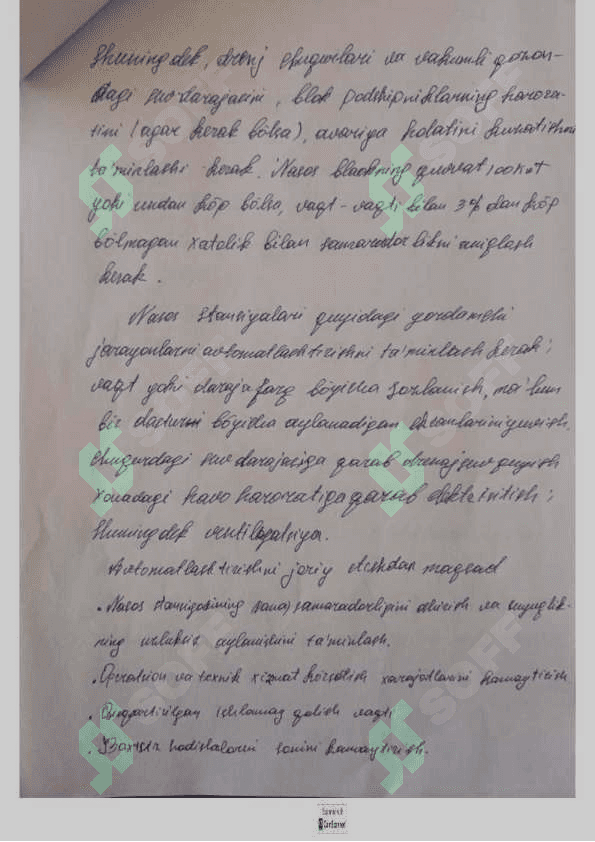 Shuningdek, drenj chuqurlari va vakumli qozon-
dagi suv darajasini, blok podshipniklarning harora-
tini (agar kerak bölsa), avariya holatini kursatishni
ta'minlashi kerak. Nasos blackning quvvat 100 kvt
yoki undan köp bölsa, vaqt-vaqti bilan 3% dan köp
bölmagan xatolik bilan samaradorlikni aniqlash
kerak.
Nasos stansiyalari quyidagi yordamchi
jarayonlarni avtomatlashtirishni ta'minlash kerak;
vaqt yoki daraja farq böyicha sozlanish, ma'lum
bir dasturni böyicha aylanadigan ekranlarini yuvish.
Chuqurdagi suv darajasiga qarab drenaj suv quyish
xonadagi havo haroratiga qarab elektr isitish;
Shuningdek ventilyatsiya.
Avtomatlashtirishni joriy etishdan maqsad
. Nasos stansiyasining samaradorligini oshirish va suyuqlik-
ning uzluksiz aylanishini ta'minlash.
. Operatsion va texnik xizmat körsatish xarajatlarini kamaytirish
. Qisqartirilgan ishlamay qolish vaqti
. Baxtsiz hodisalarni sonini kamaytirish.
SOFF
SOFF
SOFF
SOFF
SOFF
SOFF
CamScanner